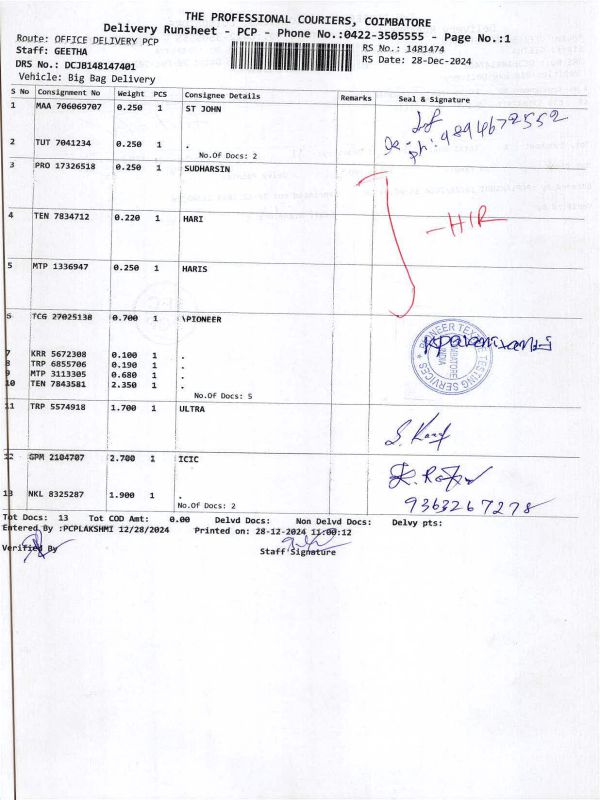 THE PROFESSIONAL COURIERS, COIMBATORE
Delivery Runsheet - PCP - Phone No.:0422-3505555 - Page No.:1
Route: OFFICE DELIVERY PCP
RS No.: 1481474
Staff: GEETHA
RS Date: 28-Dec-2024
DRS No.: DCJB148147401
Vehicle: Big Bag Delivery
S No Consignment No Weight PCS Consignee Details Remarks Seal & Signature
1 MAA 706069707 0.250 1 ST JOHN
9894672552
ph:
2 TUT 7041234 0.250 1 .
No.Of Docs: 2
3 PRO 17326518 0.250 1 SUDHARSIN
4 TEN 7834712 0.220 1 HARI
5 MTP 1336947 0.250 1 HARIS
6 TCG 27025138 0.700 1 \PIONEER
PIONEER TEXTILE TESTING SERVICES
COIMBATORE
INDIA
7 KRR 5672308 0.100 1 .
8 TRP 6855706 0.190 1 .
9 MTP 3113305 0.680 1 .
10 TEN 7843581 2.350 1 .
No.Of Docs: 5
11 TRP 5574918 1.700 1 ULTRA
12 GPM 2104707 2.700 1 ICIC
13 NKL 8325287 1.900 1 .
9363267278
No.Of Docs: 2
Tot Docs: 13 Tot COD Amt: 0.00 Delvd Docs: Non Delvd Docs: Delvy pts:
Entered By :PCPLAKSHMI 12/28/2024 Printed on: 28-12-2024 11:00:12
Verified By Staff Signature